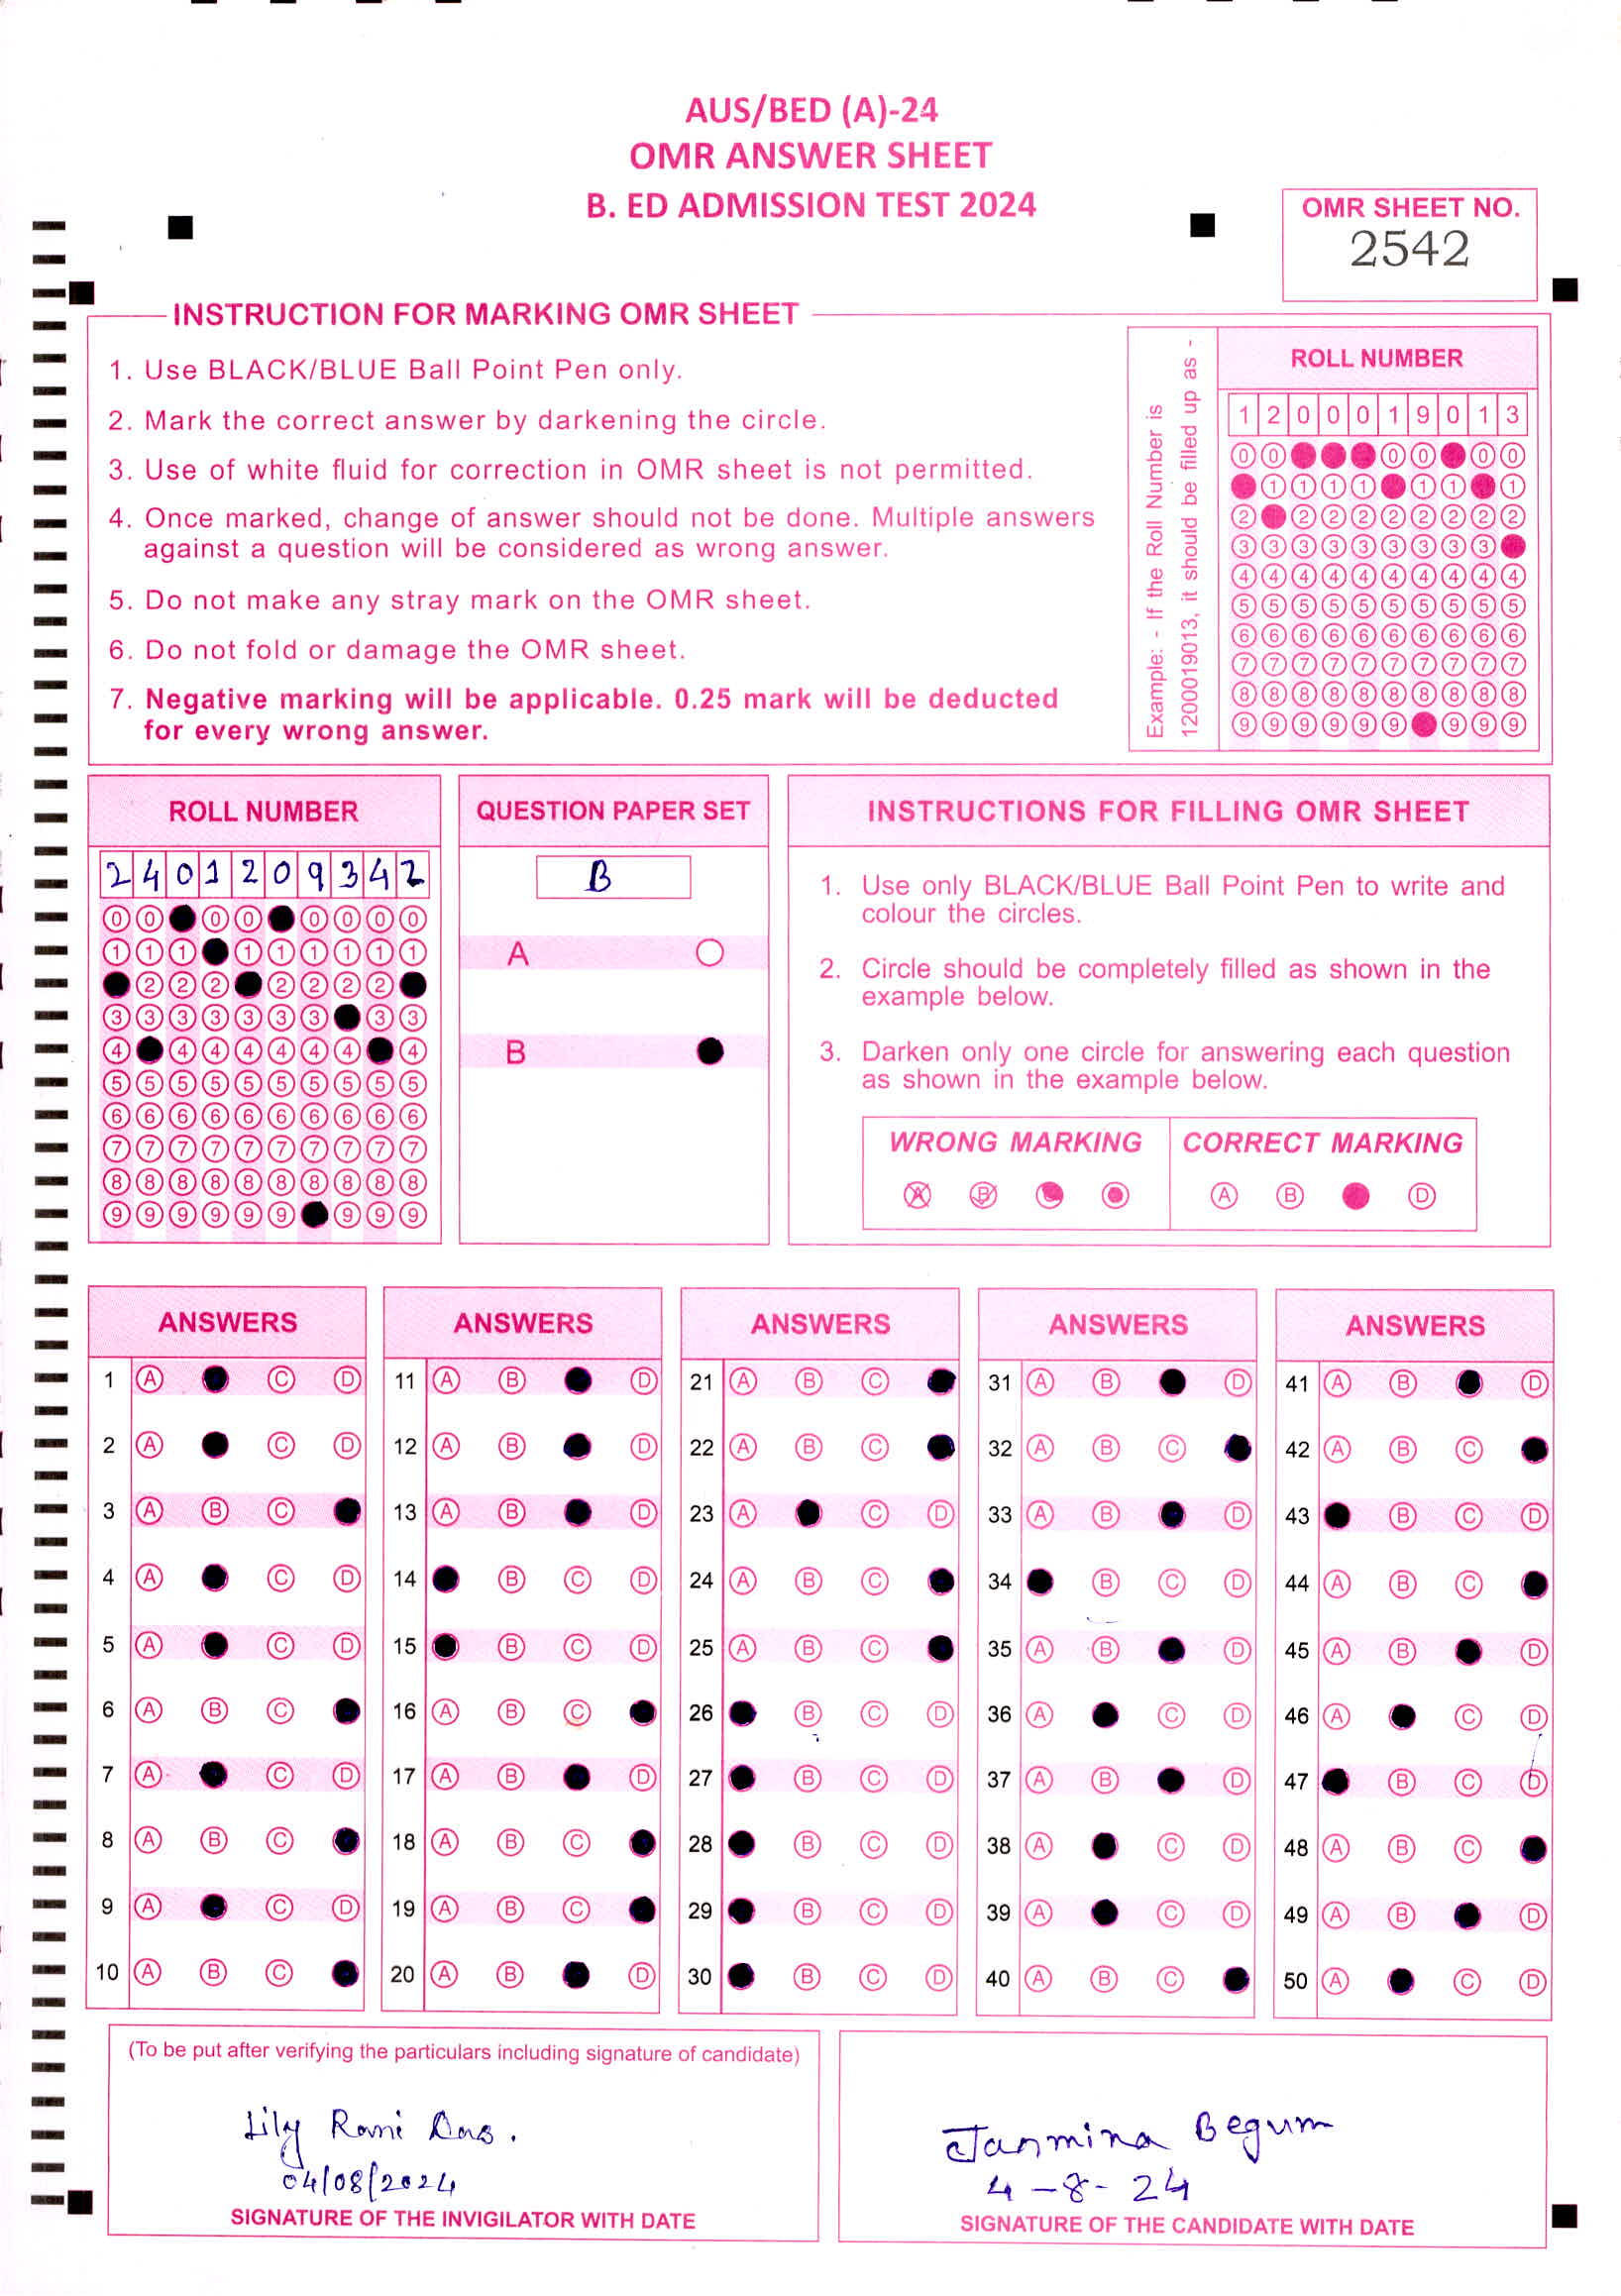 AUS/BED (A)-24
OMR ANSWER SHEET
B. ED ADMISSION TEST 2024
OMR SHEET NO.
2542
INSTRUCTION FOR MARKING OMR SHEET
1. Use BLACK/BLUE Ball Point Pen only.
2. Mark the correct answer by darkening the circle.
3. Use of white fluid for correction in OMR sheet is not permitted.
4. Once marked, change of answer should not be done. Multiple answers
against a question will be considered as wrong answer.
5. Do not make any stray mark on the OMR sheet.
6. Do not fold or damage the OMR sheet.
7. Negative marking will be applicable. 0.25 mark will be deducted
for every wrong answer.
Example: - If the Roll Number is
1200019013, it should be filled up as -
ROLL NUMBER
1 2 0 0 0 1 9 0 1 3
0 0 0 0 0 0
1 1 1 1 1 1 1
2 2 2 2 2 2 2 2 2
3 3 3 3 3 3 3 3 3
4 4 4 4 4 4 4 4 4 4
5 5 5 5 5 5 5 5 5 5
6 6 6 6 6 6 6 6 6 6
7 7 7 7 7 7 7 7 7 7
8 8 8 8 8 8 8 8 8 8
9 9 9 9 9 9 9 9 9
ROLL NUMBER
2 4 0 1 2 0 9 3 4 2
0 0 0 0 0 0 0 0
1 1 1 1 1 1 1 1 1
2 2 2 2 2 2 2
3 3 3 3 3 3 3 3 3
4 4 4 4 4 4 4 4
5 5 5 5 5 5 5 5 5 5
6 6 6 6 6 6 6 6 6 6
7 7 7 7 7 7 7 7 7 7
8 8 8 8 8 8 8 8 8 8
9 9 9 9 9 9 9 9 9
QUESTION PAPER SET
B
A
B
INSTRUCTIONS FOR FILLING OMR SHEET
1. Use only BLACK/BLUE Ball Point Pen to write and
colour the circles.
2. Circle should be completely filled as shown in the
example below.
3. Darken only one circle for answering each question
as shown in the example below.
WRONG MARKING
A B
CORRECT MARKING
A B D
ANSWERS
1 A C D
2 A C D
3 A B C
4 A C D
5 A C D
6 A B C
7 A C D
8 A B C
9 A C D
10 A B C
ANSWERS
11 A B D
12 A B D
13 A B D
14 B C D
15 B C D
16 A B C
17 A B D
18 A B C
19 A B C
20 A B D
ANSWERS
21 A B C
22 A B C
23 A C D
24 A B C
25 A B C
26 B C D
27 B C D
28 B C D
29 B C D
30 B C D
ANSWERS
31 A B D
32 A B C
33 A B D
34 B C D
35 A B D
36 A C D
37 A B D
38 A C D
39 A C D
40 A B C
ANSWERS
41 A B D
42 A B C
43 B C D
44 A B C
45 A B D
46 A C D
47 B C D
48 A B C
49 A B D
50 A C D
(To be put after verifying the particulars including signature of candidate)
Lily Rani Das.
04/08/2024
SIGNATURE OF THE INVIGILATOR WITH DATE
Jasmina Begum
4-8-24
SIGNATURE OF THE CANDIDATE WITH DATE